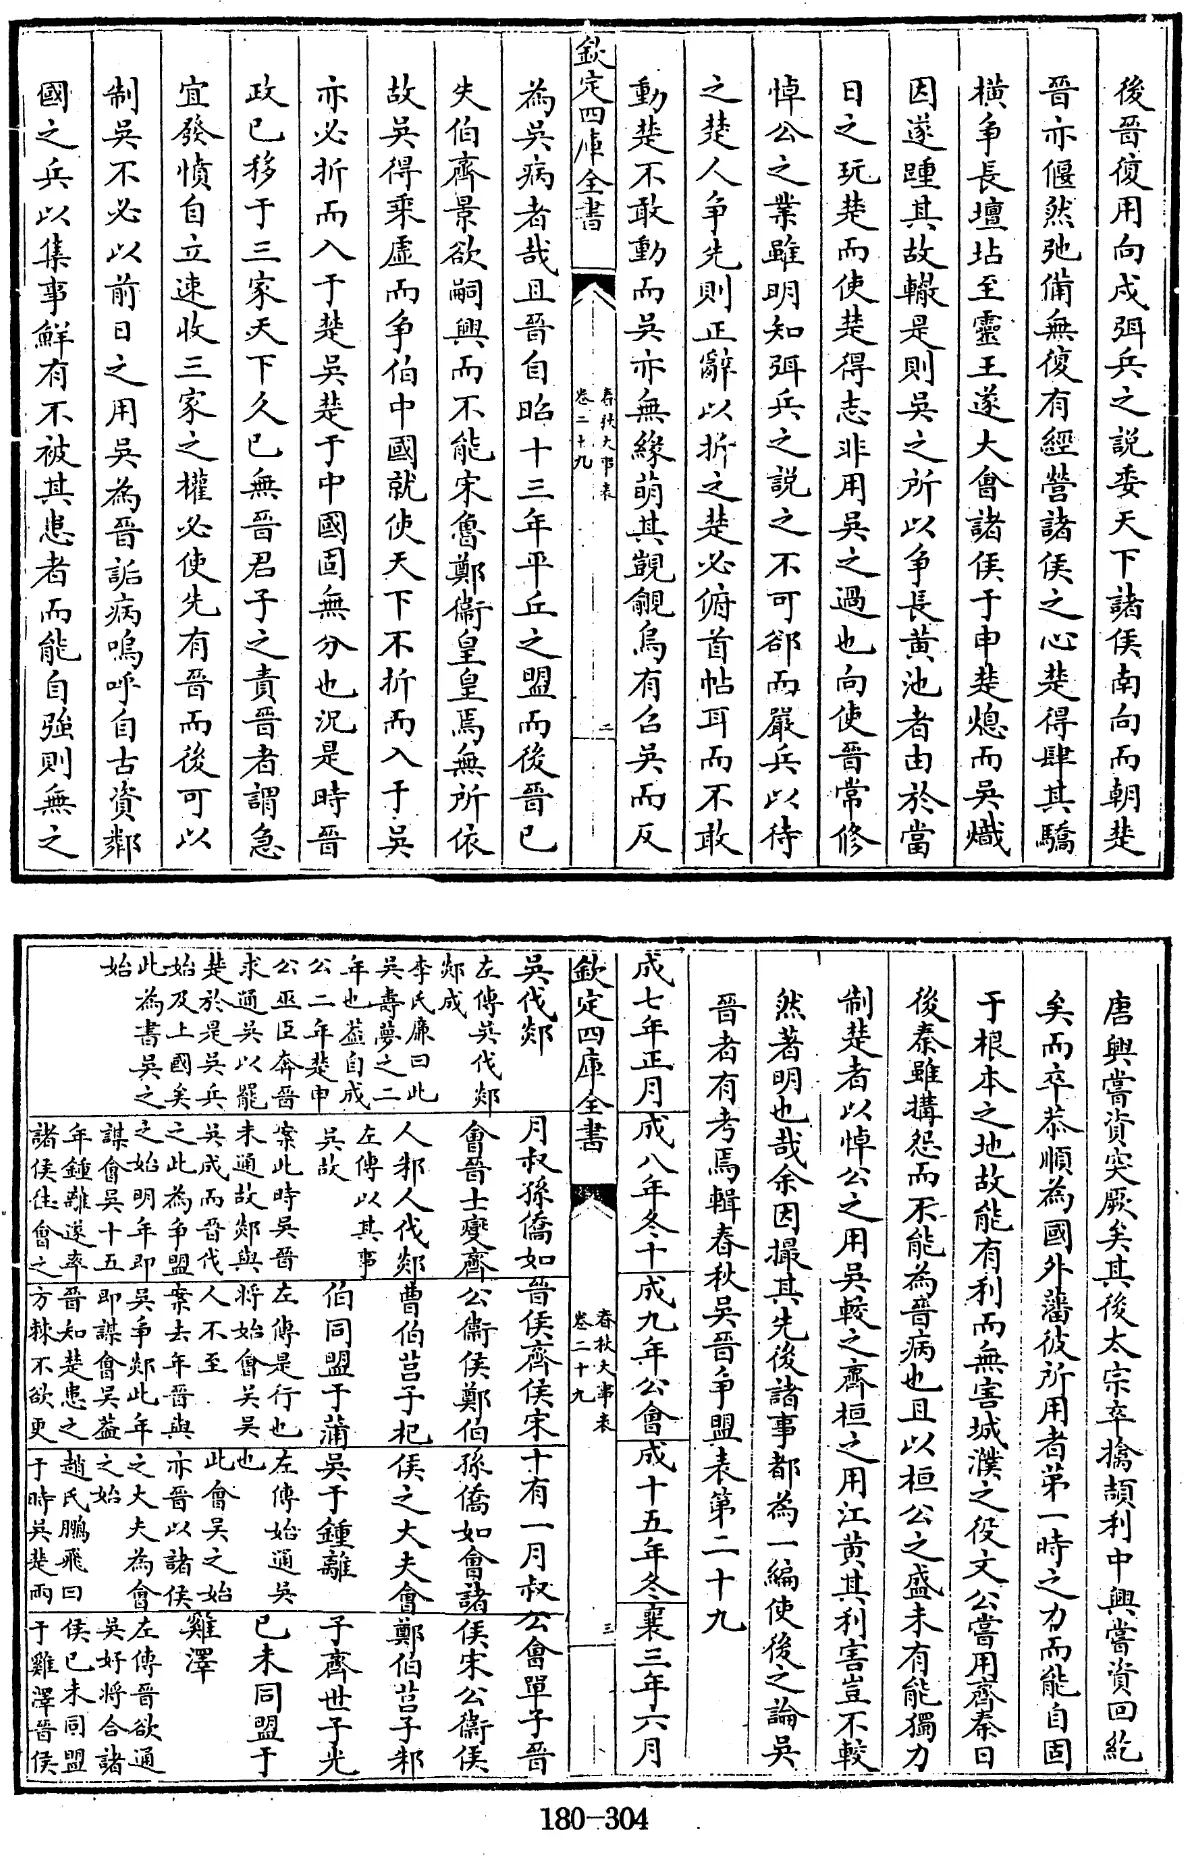 後晉復用向戌弭兵之説委天下諸侯南向而朝楚
晉亦偃然弛備無復有經營諸侯之心楚得肆其驕
橫争長壇坫至靈王遂大會諸侯于申楚熄而吳熾
因遂踵其故轍是則吳之所以争長黄池者由於當
日之玩楚而使楚得志非用吳之過也向使晉常修
悼公之業雖明知弭兵之説之不可郤而嚴兵以待
之楚人争先則正辭以折之楚必俯首帖耳而不敢
動楚不敢動而吳亦無緣萌其覬覦烏有召吳而反
欽定四庫全書
春秋大事表
卷二十九
二
為吳病者哉且晉自昭十三年平丘之盟而後晉已
失伯齊景欲嗣興而不能宋魯鄭衞皇皇焉無所依
故吳得乘虛而争伯中國就使天下不折而入于吳
亦必折而入于楚吳楚于中國固無分也況是時晉
政已移于三家天下久已無晉君子之責晉者謂急
宜發憤自立速收三家之權必使先有晉而後可以
制吳不必以前日之用吳為晉詬病嗚呼自古資鄰
國之兵以集事鮮有不被其患者而能自強則無之
唐興嘗資突厥矣其後太宗卒擒頡利中興嘗資回紇
矣而卒恭順為國外藩彼所用者第一時之力而能自固
于根本之地故能有利而無害城濮之役文公嘗用齊秦日
後秦雖搆怨而不能為晉病也且以桓公之盛未有能獨力
制楚者以悼公之用吳較之齊桓之用江黄其利害豈不較
然著明也哉余因撮其先後諸事都為一編使後之論吳
晉者有考焉輯春秋吳晉争盟表第二十九
成七年正月
吳伐郯
左傳吳伐郯
郯成
李氏廉曰此
吳壽夢之二
年也葢自成
公二年楚申
公巫臣奔晉
求通吳以罷
楚於是吳兵
始及上國矣
此為書吳之
始
成八年冬十
月叔孫僑如
會晉士燮齊
人邾人伐郯
左傳以其事
吳故
案此時吳晉
未通故郯與
吳成而晉伐
之此為争盟
之始明年即
謀會吳十五
年鍾離遂率
諸侯往會之
成九年公會
晉侯齊侯宋
公衞侯鄭伯
曹伯莒子杞
伯同盟于蒲
左傳是行也
將始會吳吳
人不至
案去年晉與
吳争郯此年
即謀會吳葢
晉知楚患之
方棘不欲更
成十五年冬
十有一月叔
孫僑如會諸
侯之大夫會
吳于鍾離
左傳始通吳
也
此會吳之始
亦晉以諸侯
之大夫為會
之始
趙氏鵬飛曰
于時吳楚兩
襄三年六月
公會單子晉
侯宋公衞侯
鄭伯莒子邾
子齊世子光
已未同盟于
雞澤
左傳晉欲通
吳好將合諸
侯已未同盟
于雞澤晉侯
欽定四庫全書
春秋大事表
卷二十九
三
180-304